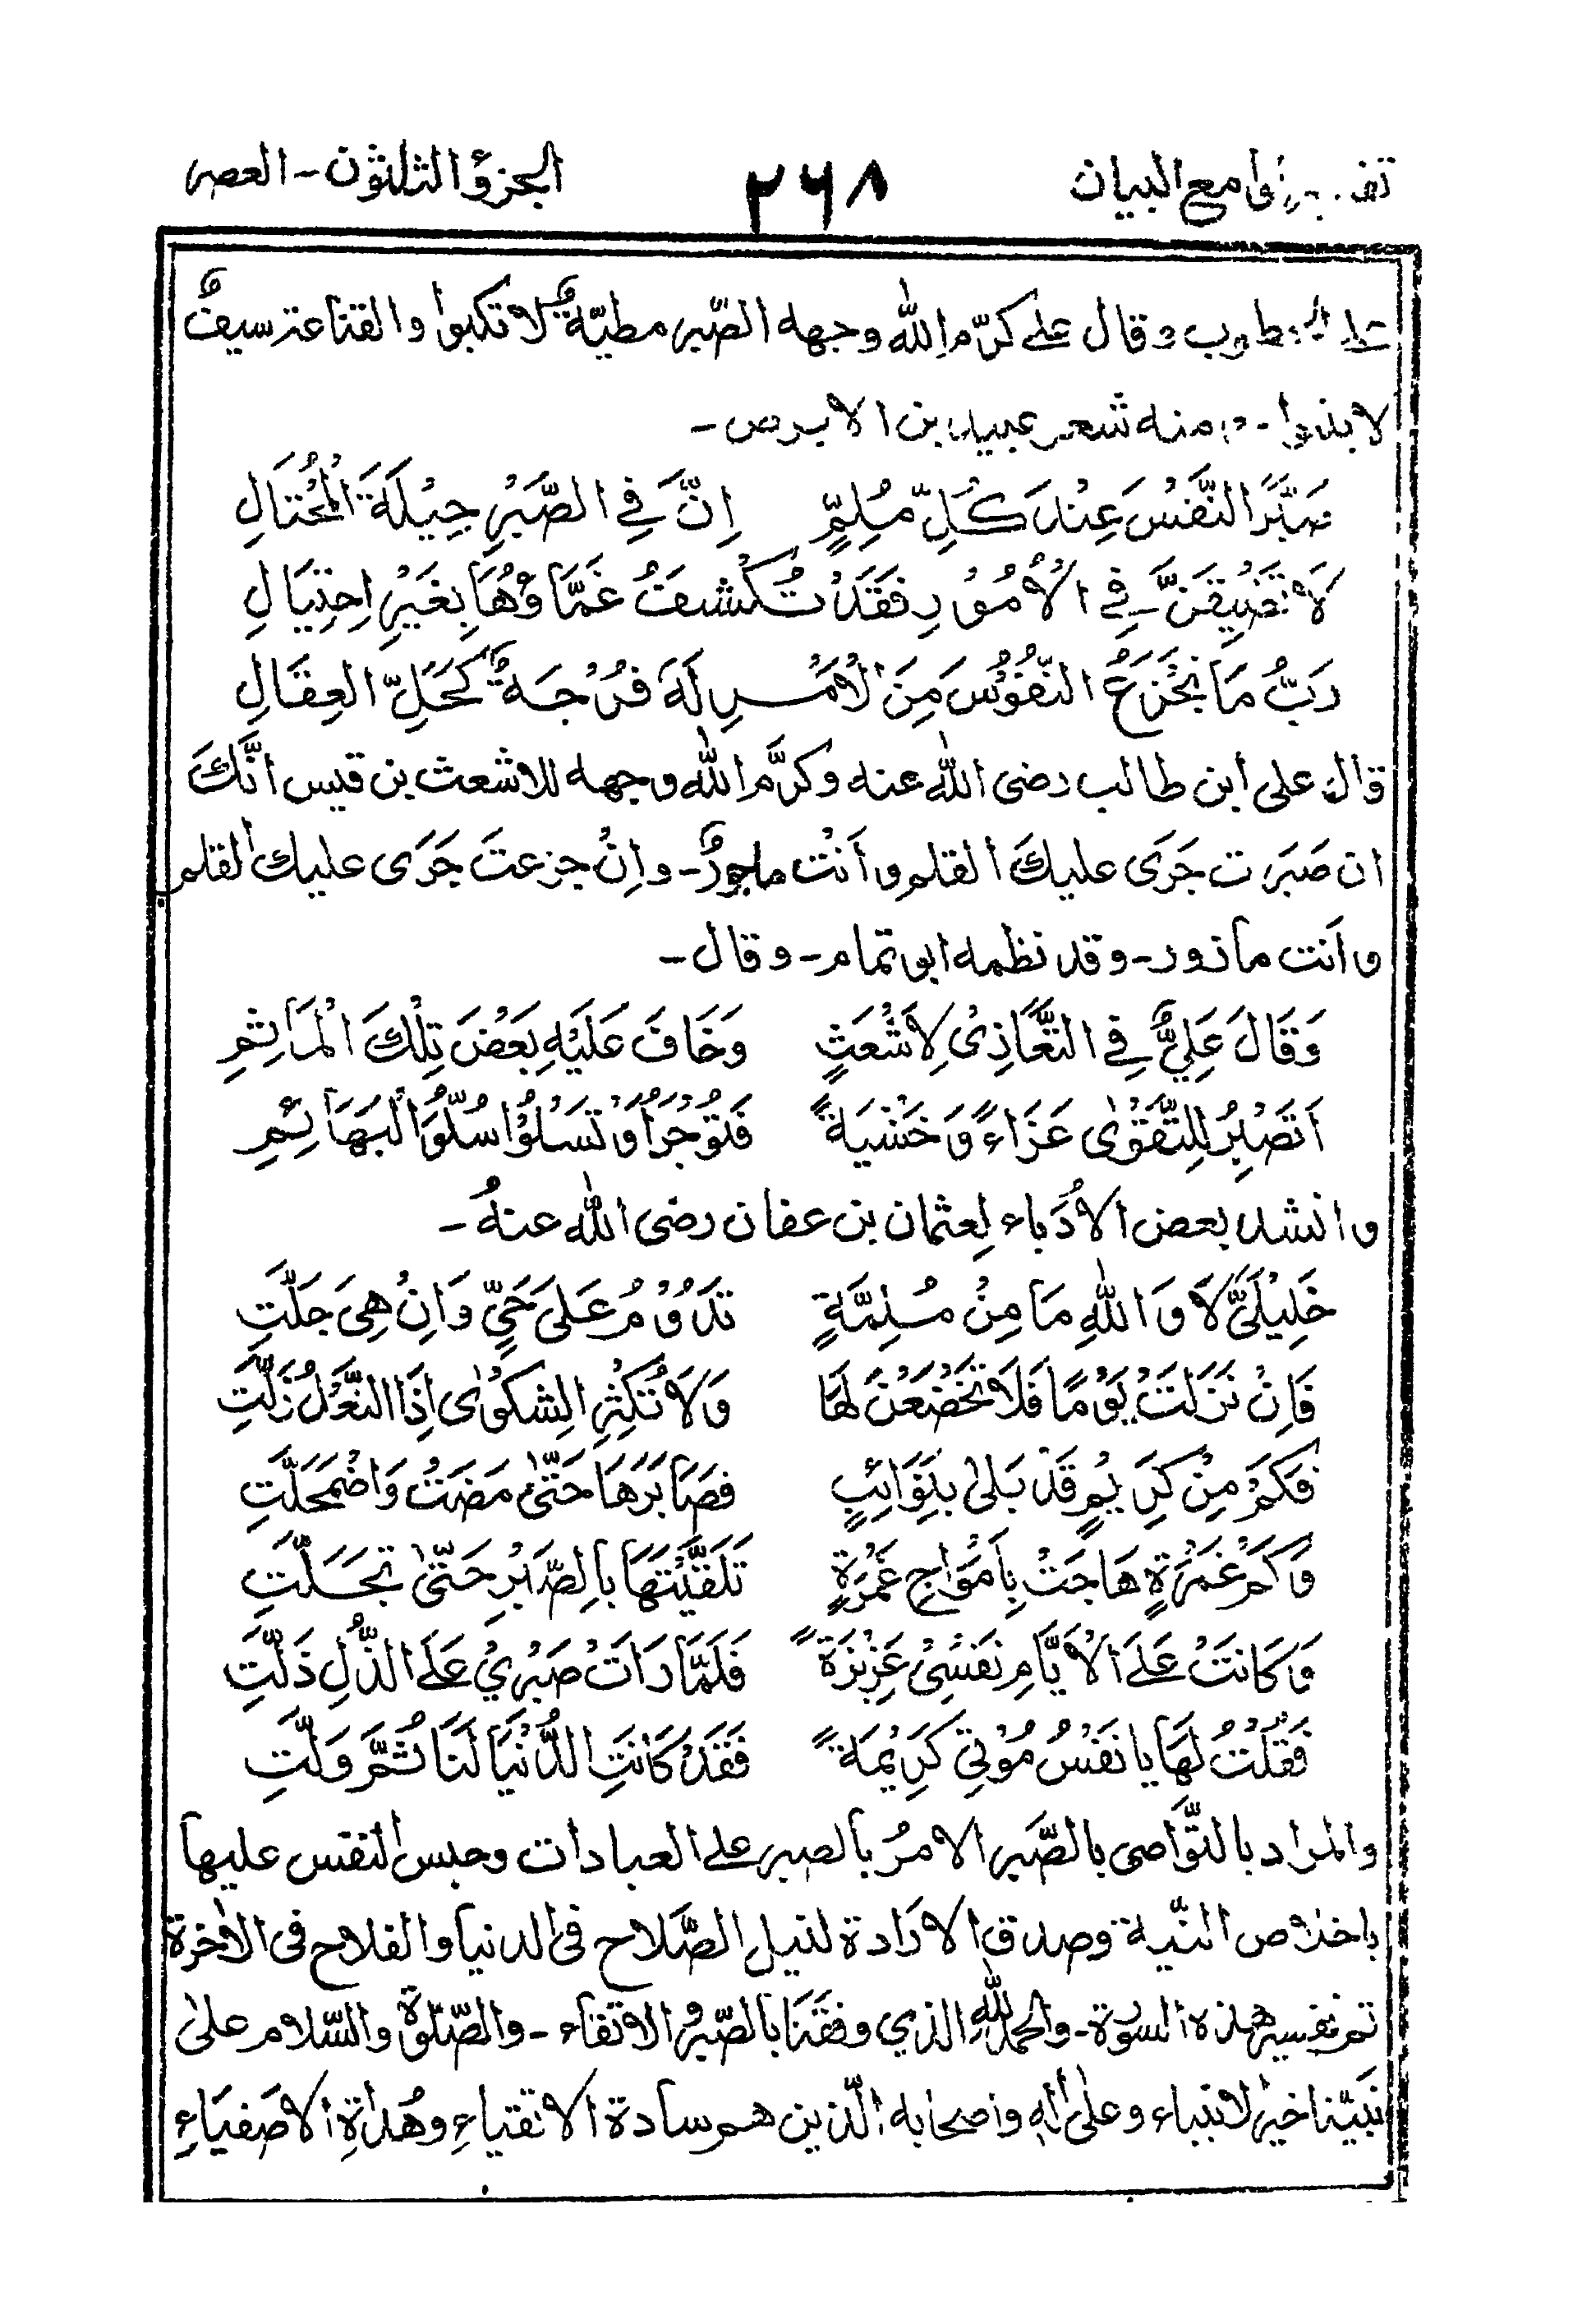 البيان ٢٦٨ الجزؤ الثلثون - العصر
وقال علي كرّم الله وجهه الصّبر مطيّةٌ لا تكبوا والقناعة سيفٌ
منه شعر عبيد بن الابرص -
صَبِّرِ النَّفْسَ عِنْدَ كُلِّ مُلِمٍّ اِنَّ فِي الصَّبْرِ حِيْلَةَ الْمُحْتَالِ
لَا تَضِيْقَنَّ فِي الْاُمُوْرِ فَقَدْ تُكْشَفُ غَمَّاؤُهَا بِغَيْرِ احْتِيَالِ
رُبَّ مَا تَجْزَعُ النُّفُوْسُ مِنَ الْاَمْرِ لَهَ فَرْجَةٌ كَحَلِّ العِقَالِ
قال على ابن طالب رضى الله عنه وكرَّم الله وجهه للاشعث بن قيس انَّكَ
ان صَبَرَت جَرَى عليكَ القلم وأنْت ماجورٌ - واِنْ جزعتَ جَرَى عليك القلم
وأنت مأزور - وقد نظمه ابو تمام - وقال -
وَقَالَ عَلِيٌّ فِي التَّعَازِىْ لِاَشْعَثٍ وَخَافَ عَلَيْهِ بَعْضَ تِلْكَ الْمَاٰثِمِ
اَتَصْبِرُ لِلتَّقْوٰى عَزَاءً وَخَشْيَةً فَتُوْجَرُ اَوْ تَسْلُوْا سُلُوَّ الْبَهَائِمِ
وانشد بعض الاُدَباء لِعثمان بن عفان رضى الله عنهُ -
خَلِيْلَيَّ لَا وَاللهِ مَا مِنْ مُلِمَّةٍ تَدُوْمُ عَلىَ حَيٍّ وَاِنْ هِىَ جَلَّتِ
فَاِنْ نَزَلَتْ يَوْمًا فَلَا تَخْضَعَنْ لَهَا وَلَا تُكْثِرِ الشِّكْوٰى اِذَا النَّعْلُ زَلَّتِ
فَكَمْ مِنْ كَرِيْمٍ قَدْ بَلىٰ بِنَوَائِبٍ فَصَابَرَهَا حَتّىٰ مَضَتْ وَاضْمَحَلَّتِ
وَكَمْ غَمْرَةٍ هَاجَتْ بِاَمْوَاجِ غَمْرَةٍ تَلَقَّيْتُهَا بِالصَّبْرِ حَتّىٰ تَجَلَّتِ
وَكَانَتْ عَلَى الْاَيَّامِ نَفْسِىْ عَزِيْزَةً فَلَمَّا رَاَتْ صَبْرِيْ عَلَى الذُّلِ ذَلَّتِ
فَقُلْتُ لَهَا يا نَفْسُ مُوْتِي كَرِيْمَةً فَقَدْ كَانَتِ الدُّنْيَا لَنَا ثُمَّ وَلَّتِ
والمراد بالتَّواصى بالصَّبر الامرُ بالصبر على العبادات وحبس النفس عليها
باخلاص النيّة وصدق الارَادة لنيل الصَّلاح فى الدنيا والفلاح فى الاٰخرة
تم تفسير هذه السورة - والحمدلله الذي وفقَنَا بالصّبر والاتقاء - والصّلوة والسّلام علىٰ
نَبيّنا خير الانبياء وعلىٰ اٰلهٖ واصحابه الّذين هم سادة الاتقياءِ وهُداةِ الاَصْفياءِ